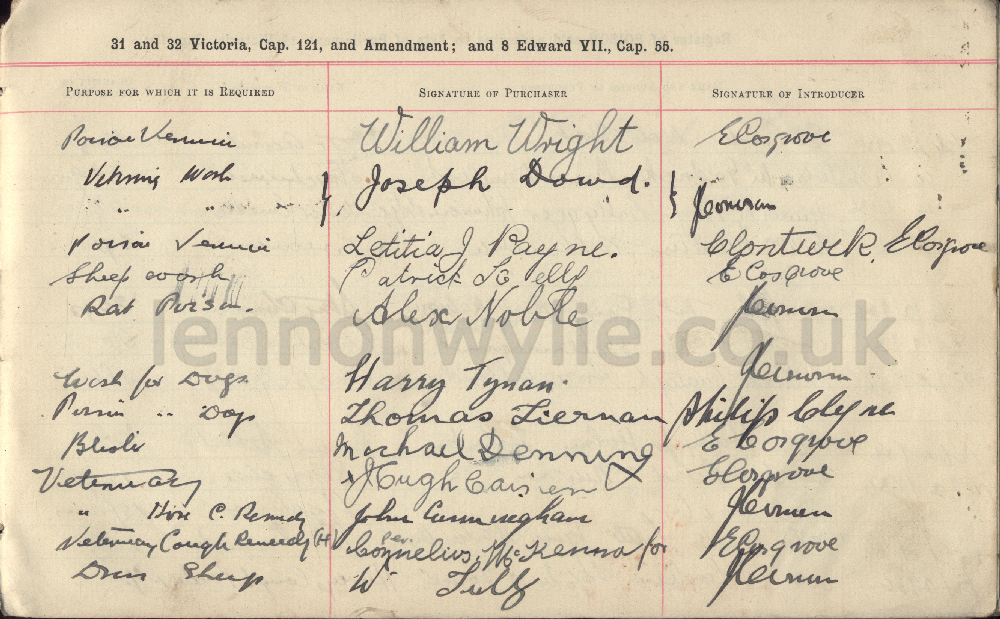 31 and 32 Victoria, Cap. 121, and Amendment; and 8 Edward VII., Cap. 55.
PURPOSE FOR WHICH IT IS REQUIRED SIGNATURE OF PURCHASER SIGNATURE OF INTRODUCER
Poison Vermin William Wright E Cosgrove
Wash Joseph Dowd.
" "
Poison Vermin Letitia J Payne. Clonturk. E Cosgrove
Sheep wash Patrick E Cosgrove
Rat Poison. Alex Noble
lennonwylie.co.uk
Wash for Dogs Harry Tynan.
Poison .. Dogs Thomas Tiernan Philip Clyne
Blister Michael Denning E Cosgrove
Veterinary Hugh E Cosgrove
" Horse C. Remedy John Cunningham
Veterinary Cough Remedy (H) per Cornelius McKenna for E Cosgrove
Dress Sheep W Tully